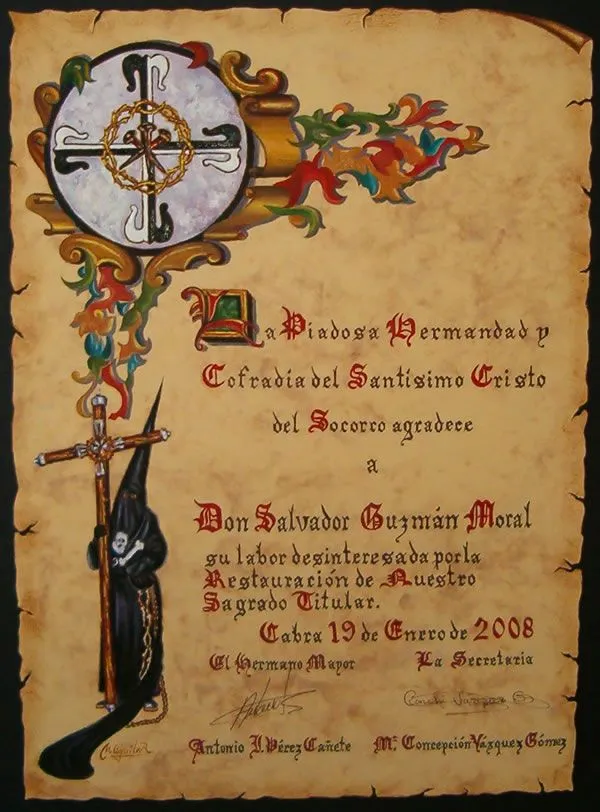 La Piadosa Hermandad y
Cofradía del Santísimo Cristo
del Socorro agradece
a
Don Salvador Guzmán Moral
su labor desinteresada por la
Restauración de Nuestro
Sagrado Titular.
Cabra 19 de Enero de 2008
El Hermano Mayor La Secretaria
Antonio J. Pérez Cañete Mª Concepción Vázquez Gómez